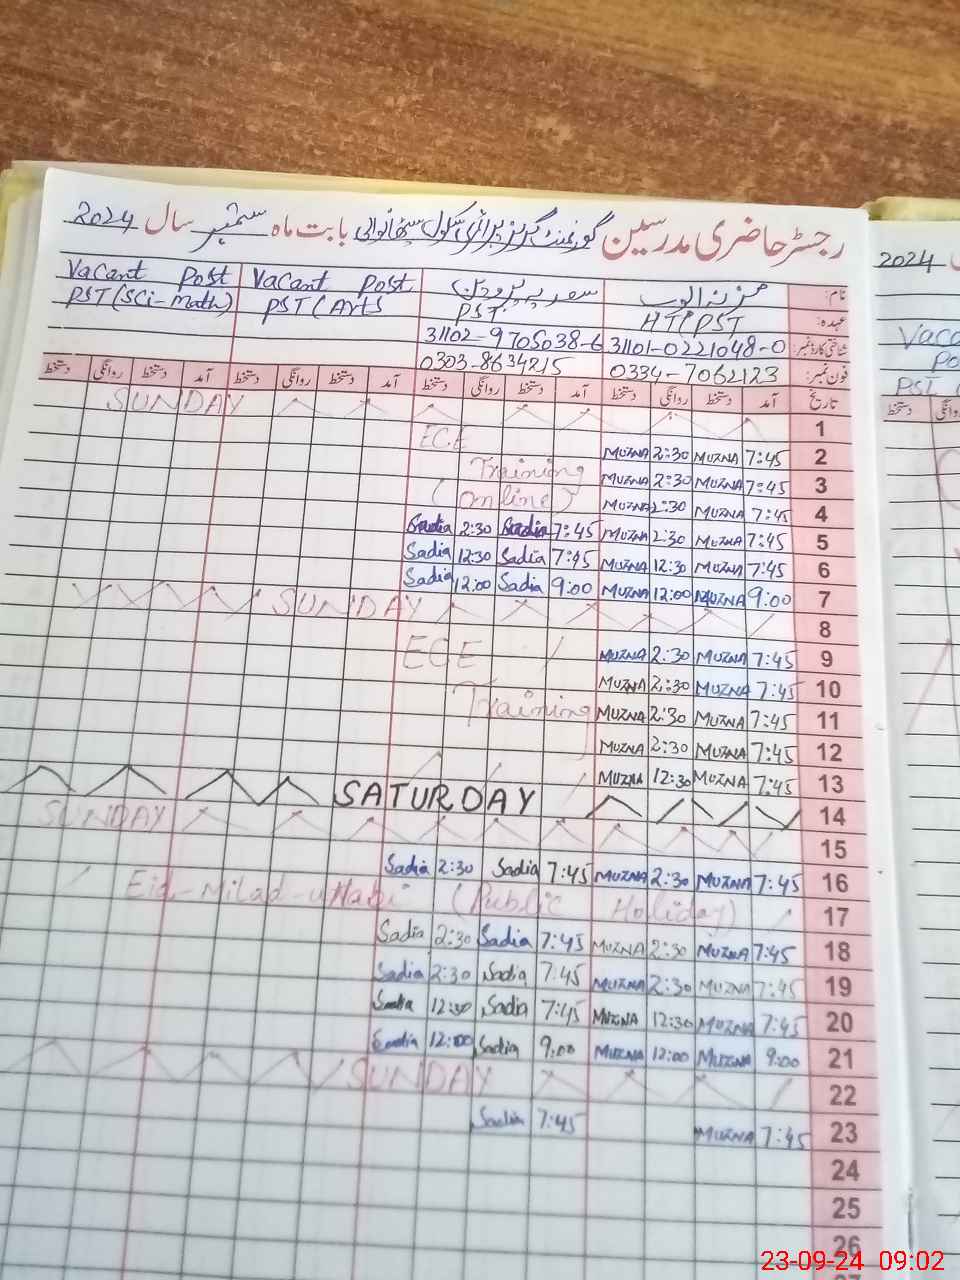 رجسٹر حاضری مدرسین گورنمنٹ گرلز پرائمری سکول بابت ماہ ستمبر سال 2024
نام: مزنہ ایوب سعدیہ پروین Vacant Post Vacant Post
عہدہ: HT/PST PST PST (Arts PST (Sci-Math)
شناختی کارڈ نمبر: 31101-0221048-0 31102-9705038-6
فون نمبر: 0334-7062123 0303-8634215
تاریخ آمد دستخط روانگی دستخط آمد دستخط روانگی دستخط آمد دستخط روانگی دستخط آمد دستخط روانگی دستخط
1 SUNDAY
2 7:45 MUZNA 2:30 MUZNA ECE
3 7:45 MUZNA 2:30 MUZNA Training
4 7:45 MUZNA 2:30 MUZNA (Online)
5 7:45 MUZNA 2:30 MUZNA 7:45 Sadia 2:30 Sadia
6 7:45 MUZNA 12:30 MUZNA 7:45 Sadia 12:30 Sadia
7 9:00 MUZNA 12:00 MUZNA 9:00 Sadia 12:00 Sadia
8 SUNDAY
9 7:45 MUZNA 2:30 MUZNA ECE
10 7:45 MUZNA 2:30 MUZNA
11 7:45 MUZNA 2:30 MUZNA Training
12 7:45 MUZNA 2:30 MUZNA
13 7:45 MUZNA 12:30 MUZNA
14 SATURDAY
15 SUNDAY
16 7:45 MUZNA 2:30 MUZNA 7:45 Sadia 2:30 Sadia
17 Eid-Milad-u-Nabi (Public Holiday)
18 7:45 MUZNA 2:30 MUZNA 7:45 Sadia 2:30 Sadia
19 7:45 MUZNA 2:30 MUZNA 7:45 Sadia 2:30 Sadia
20 7:45 MUZNA 12:30 MUZNA 7:45 Sadia 12:30 Sadia
21 9:00 MUZNA 12:00 MUZNA 9:00 Sadia 12:00 Sadia
22 SUNDAY
23 7:45 MUZNA 7:45 Sadia
24
25
26
2024
PST
23-09-24 09:02